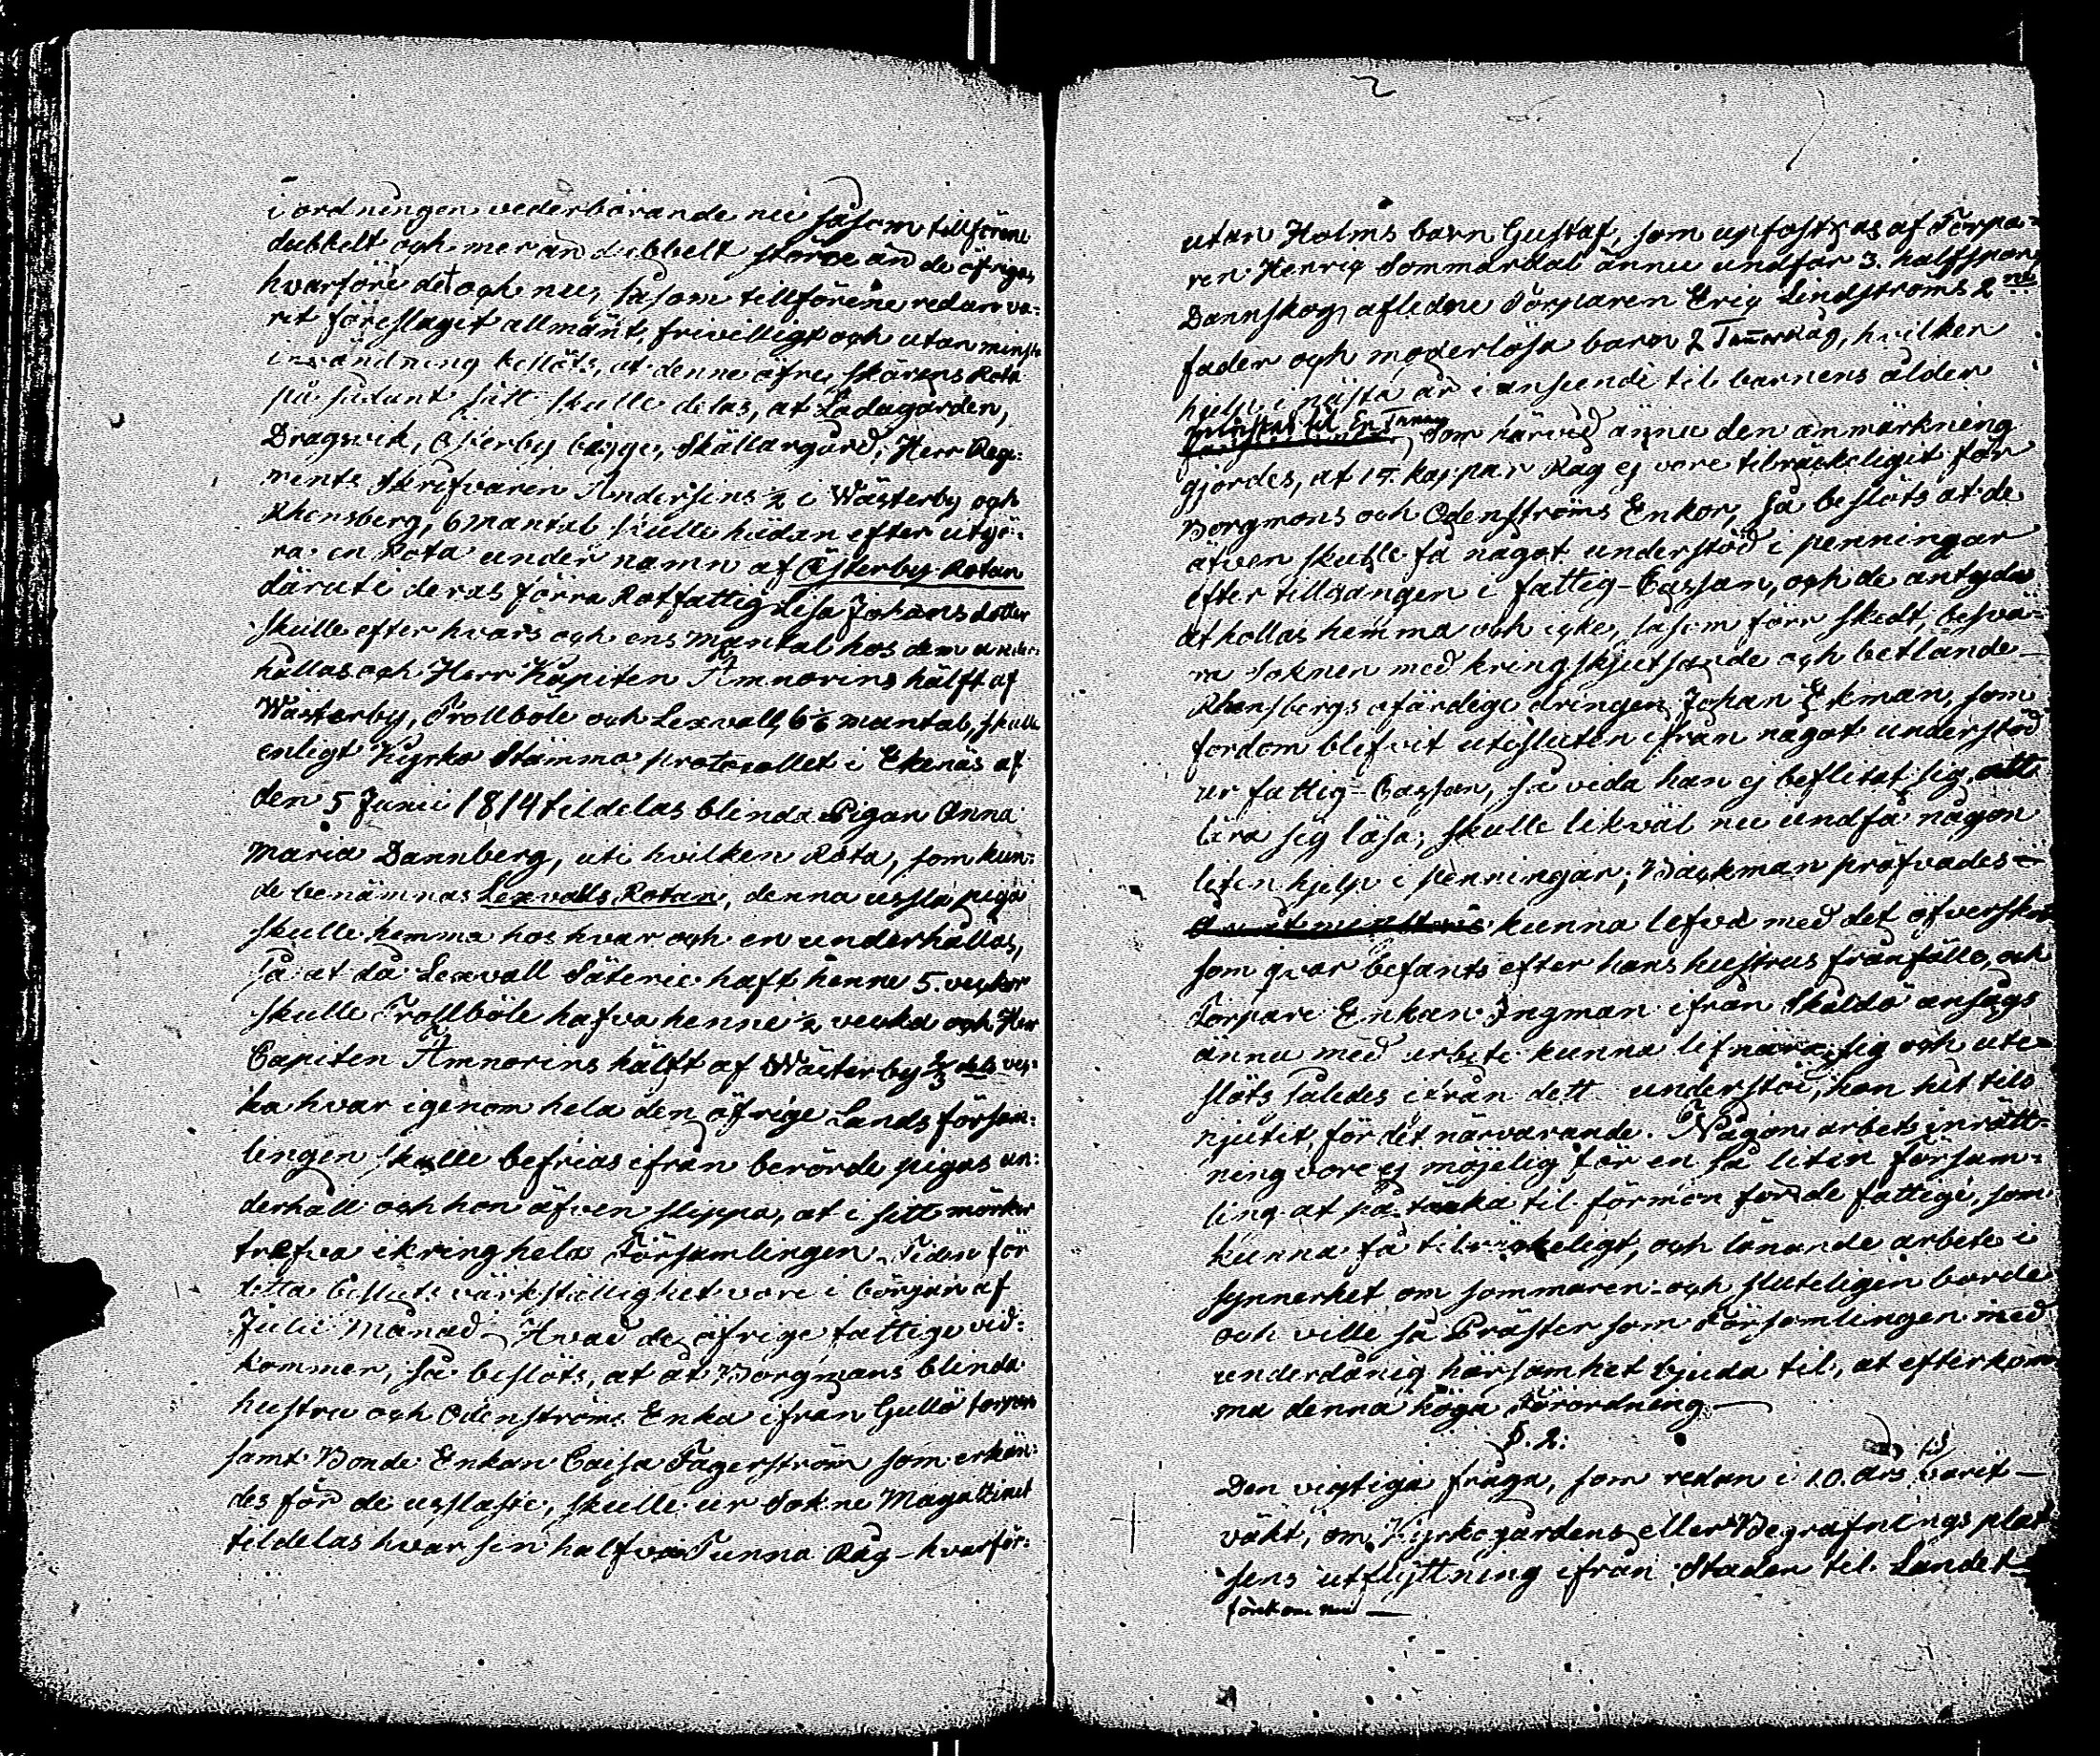 i ordningen vederbörande nu såsom tillförene
dubbelt och mer än dubbelt större än de öfriga,
hvarföre det och nu, såsom tillförene redan va-
rit föreslagit allmänt, frivilligt och utan minsta
invändning beslöts, at denne öfre skärens Rota
på sådant sätt skulle delas, at Ladugården,
Dragsvik, Österby bägge, Skällargård, Herr Rege-
ments Skrifvaren Andersins ½ i Wästerby och
Rhensberg, 6 mantal skulle hädan efter utgö-
ra en Rota under namn af Österby Rotan
däruti deras förra Rotfattig Lisa Johansdotter
skulle efter hvars och ens mantal hos dem under-
hållas och Herr Kapiten Amnorins hälft af
Wästerby, Trollböle och Lexvall, 6⅙ mantal, skulle
enligt Kyrko Stämmo protocollet i Ekenäs af
den 5 Junii 1814 tildelas blinda Pigan Anna
Maria Dannberg, uti hvilken Rota, som kun-
de benämnas Lexvalls Rotan, denna usla piga
skulle hemma hos hvar och en underhållas,
så at då Lexvall Säterie haft henne 5 veckor
skulle Trollböle hafva henne ½ vecka och Herr
Capiten Amnorins hälft af Wästerby ⅔ dels vec-
ka hvar igenom hela den öfrige Lands försam-
lingen skulle befrias ifrån berörde pigas un-
derhåll och hon äfven slippa, at i sitt mörker
trefva ikring hela Församlingen. Tiden för
detta besluts värkställighet vore i början af
Julii månad. Hvad de öfrige fattige vid-
kommer, så beslöts, at åt Borgmans blinda
hustru och Odenströms Enka ifrån Gullö torpen
samt Bonde Enkan Caisa Fagerström som erkän-
des för de uslaste, skulle ur Sokne Magazinet
tildelas hvar sin halfva Tunna Råg - hvarför-
utan Holms barn Gustaf, som upfostras af Torpa-
ren Henriq Sommardal ännu undfår 3. halfspan,
Dannskog aflidne Torparen Eriq Lindströms 2ne
fader och moderlösa barn 2 Tunnor Råg, hvilken
hielp i nästa år i anseende til barnens ålder
til En Tunna
Som härvid ännu den anmärkning
gjordes, at 15. kappar Råg ej vore tilräckeligit för
Borgmans och Odenströms Enkor, så beslöts at de
äfven skulle få något understöd i penningar
efter tillgången i fattig-Cassan, och de antyda
at hållas hemma och icke, såsom förr skedt, besvä-
ra Soknen med kringskjutsande och betlande
Rhensbergs ofärdige drängen Johan Ekman, som
fordom blifvit utesluten ifrån något understöd
ur fattig-Cassan, så vida han ej beflitat sig att
lära sig läsa; skulle likväl nu undfå någon
liten hjelp i penningar; Backman pröfvades
kunna lefva med det öfverskott
som qvar befants efter hans hustrus frånfälle, och
Torpare Enkan Ingman ifrån Skåldö ansågs
ännu med arbete kunna lifnära sig och ute-
slöts således ifrån dett understöd, hon hit tils
njutit, för det närvarande. Någon arbets inrätt-
ning vore ej möjelig för en så liten försam-
ling at påtänka til förmon för de fattige, som
kunna få tilräckeligt, och lönande arbete i
synnerhet om sommaren - och sluteligen borde
och ville så Präster som Församlingen med
underdånig hörsamhet bjuda til, at efterkom-
ma denna höga Förordning
§. 2.
Den vigtiga fråga, som redan i 10. års tid varit
väkt, om Kyrkogårdens eller Begrafnings plat-
sens utflyttning ifrån Staden til Landet
förekom nu